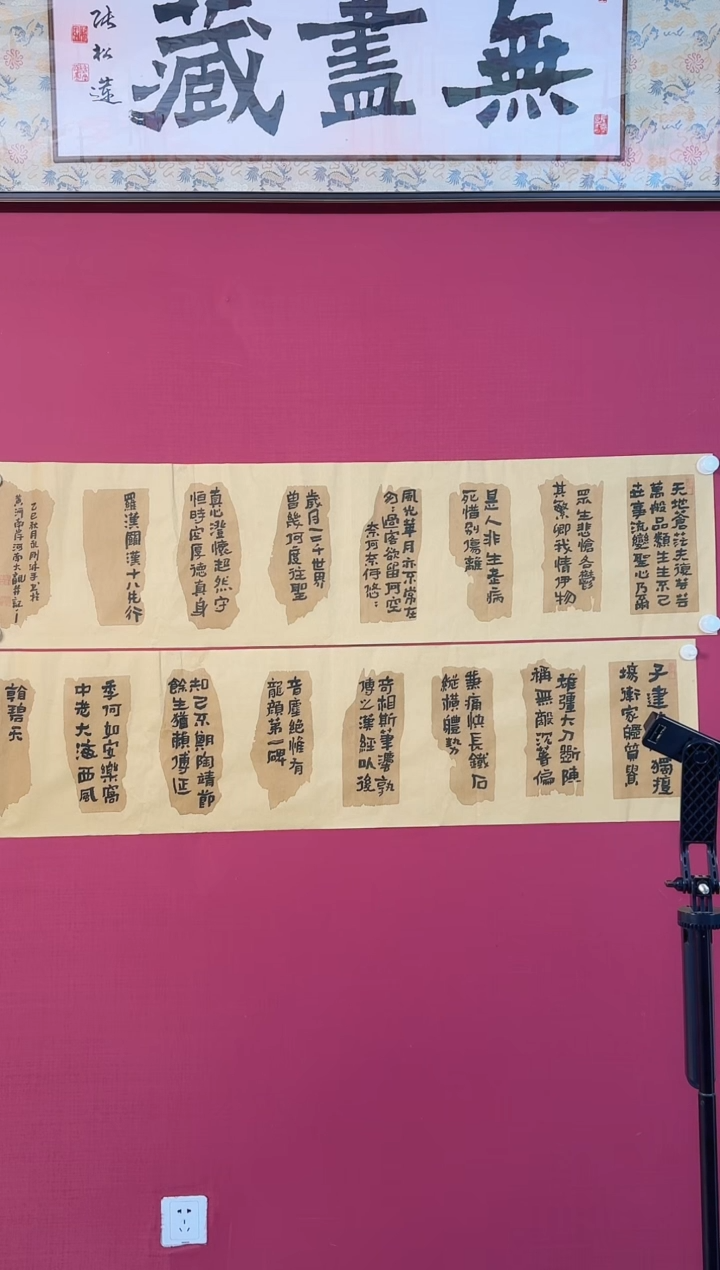 無盡藏
張松蓮
天地蒼茫夫復若苦
萬般品類生生不已
世事流變聖心乃爾
眾生悲愴各鬱
其繁卿我情伊物
是人非生老病
死惜別傷離
風花華月亦不常在
匆匆過客欲留何空
奈何奈何悠悠
歲月一二千世界
曾幾何度往聖
真心澄懷超然守
恒時空厚德真身
羅漢爾漢十八先行
乙巳秋月
黃河南岸河南大觀
子建 獨擅
場衝家體質覺
雄疆大刀斷陣
稱無敵沉著偏
兼痛快長鐵石
縱橫體勢
奇相斯筆濃孰
傳之漢經以後
音塵絕惟有
龍顏第一碑
知己不期陶靖節
餘生獲賴傅正
季何如安樂窩
中老大海西風
翰碧天